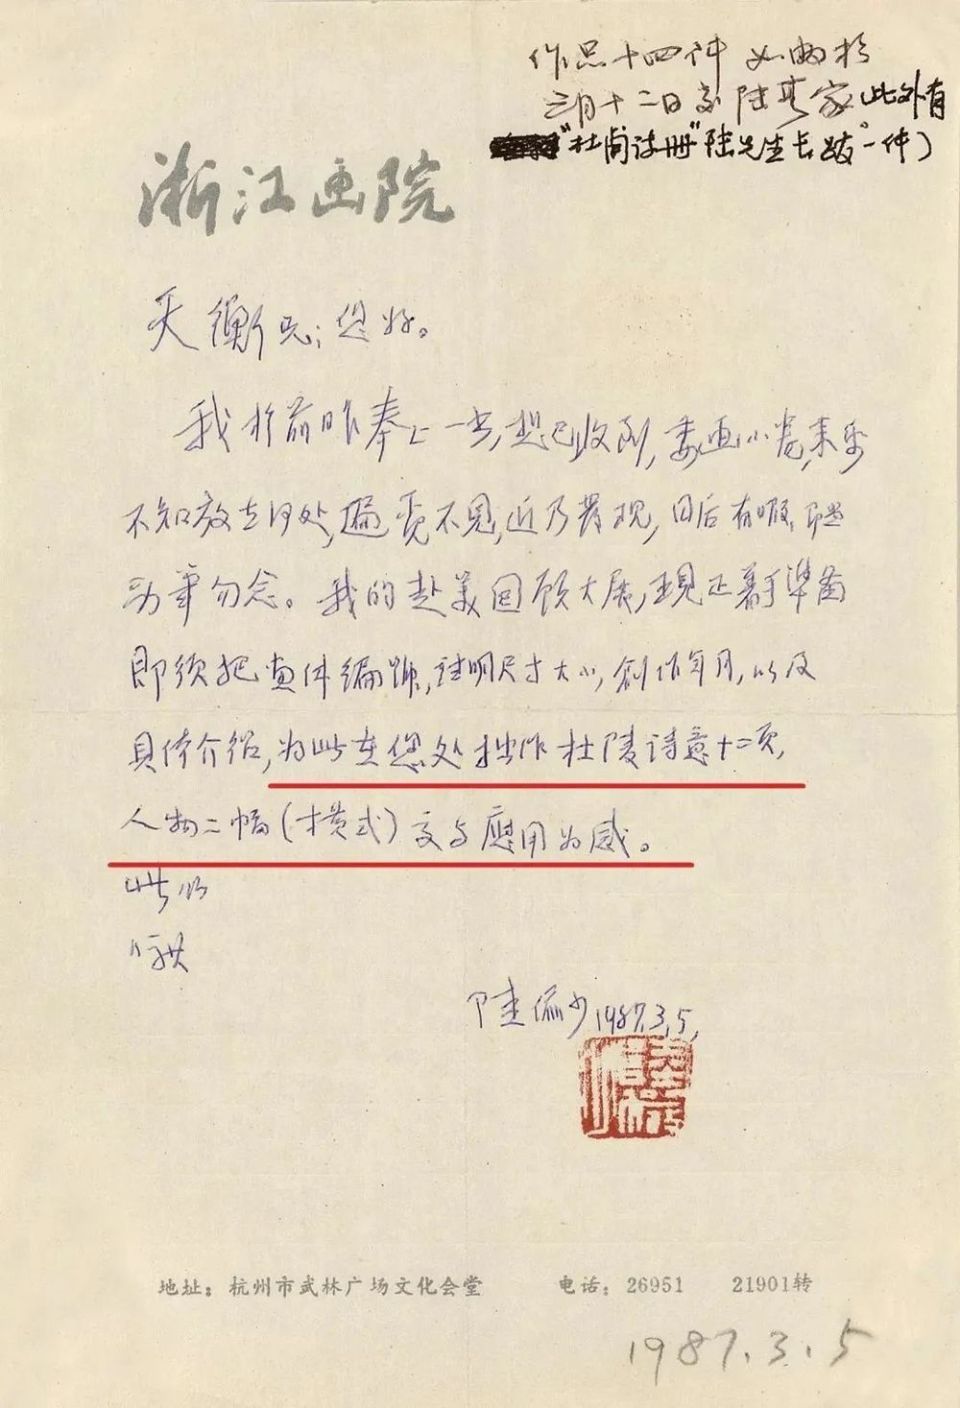 作品十四件 如数于
三月十二日交陆亨家(此外有
"杜甫诗册"陆先生长跋一件)
浙江画院
天衡兄:您好。
我于前昨奉上一书,想已收到,委画小卷,素纸
不知放在何处,遍觅不见,近乃发现,日后有暇,即当
动笔勿念。我的赴美回顾大展,现正着手準备
即须把画件编号,註明尺寸大小,创作年月,以及
具体介绍,为此在您处拙作杜陵诗意十二页,
人物二幅(横式)交与應用为感。
此外
陆俨少1987.3.5,
地址:杭州市武林广场文化会堂 电话:26951 21901转
1987.3.5